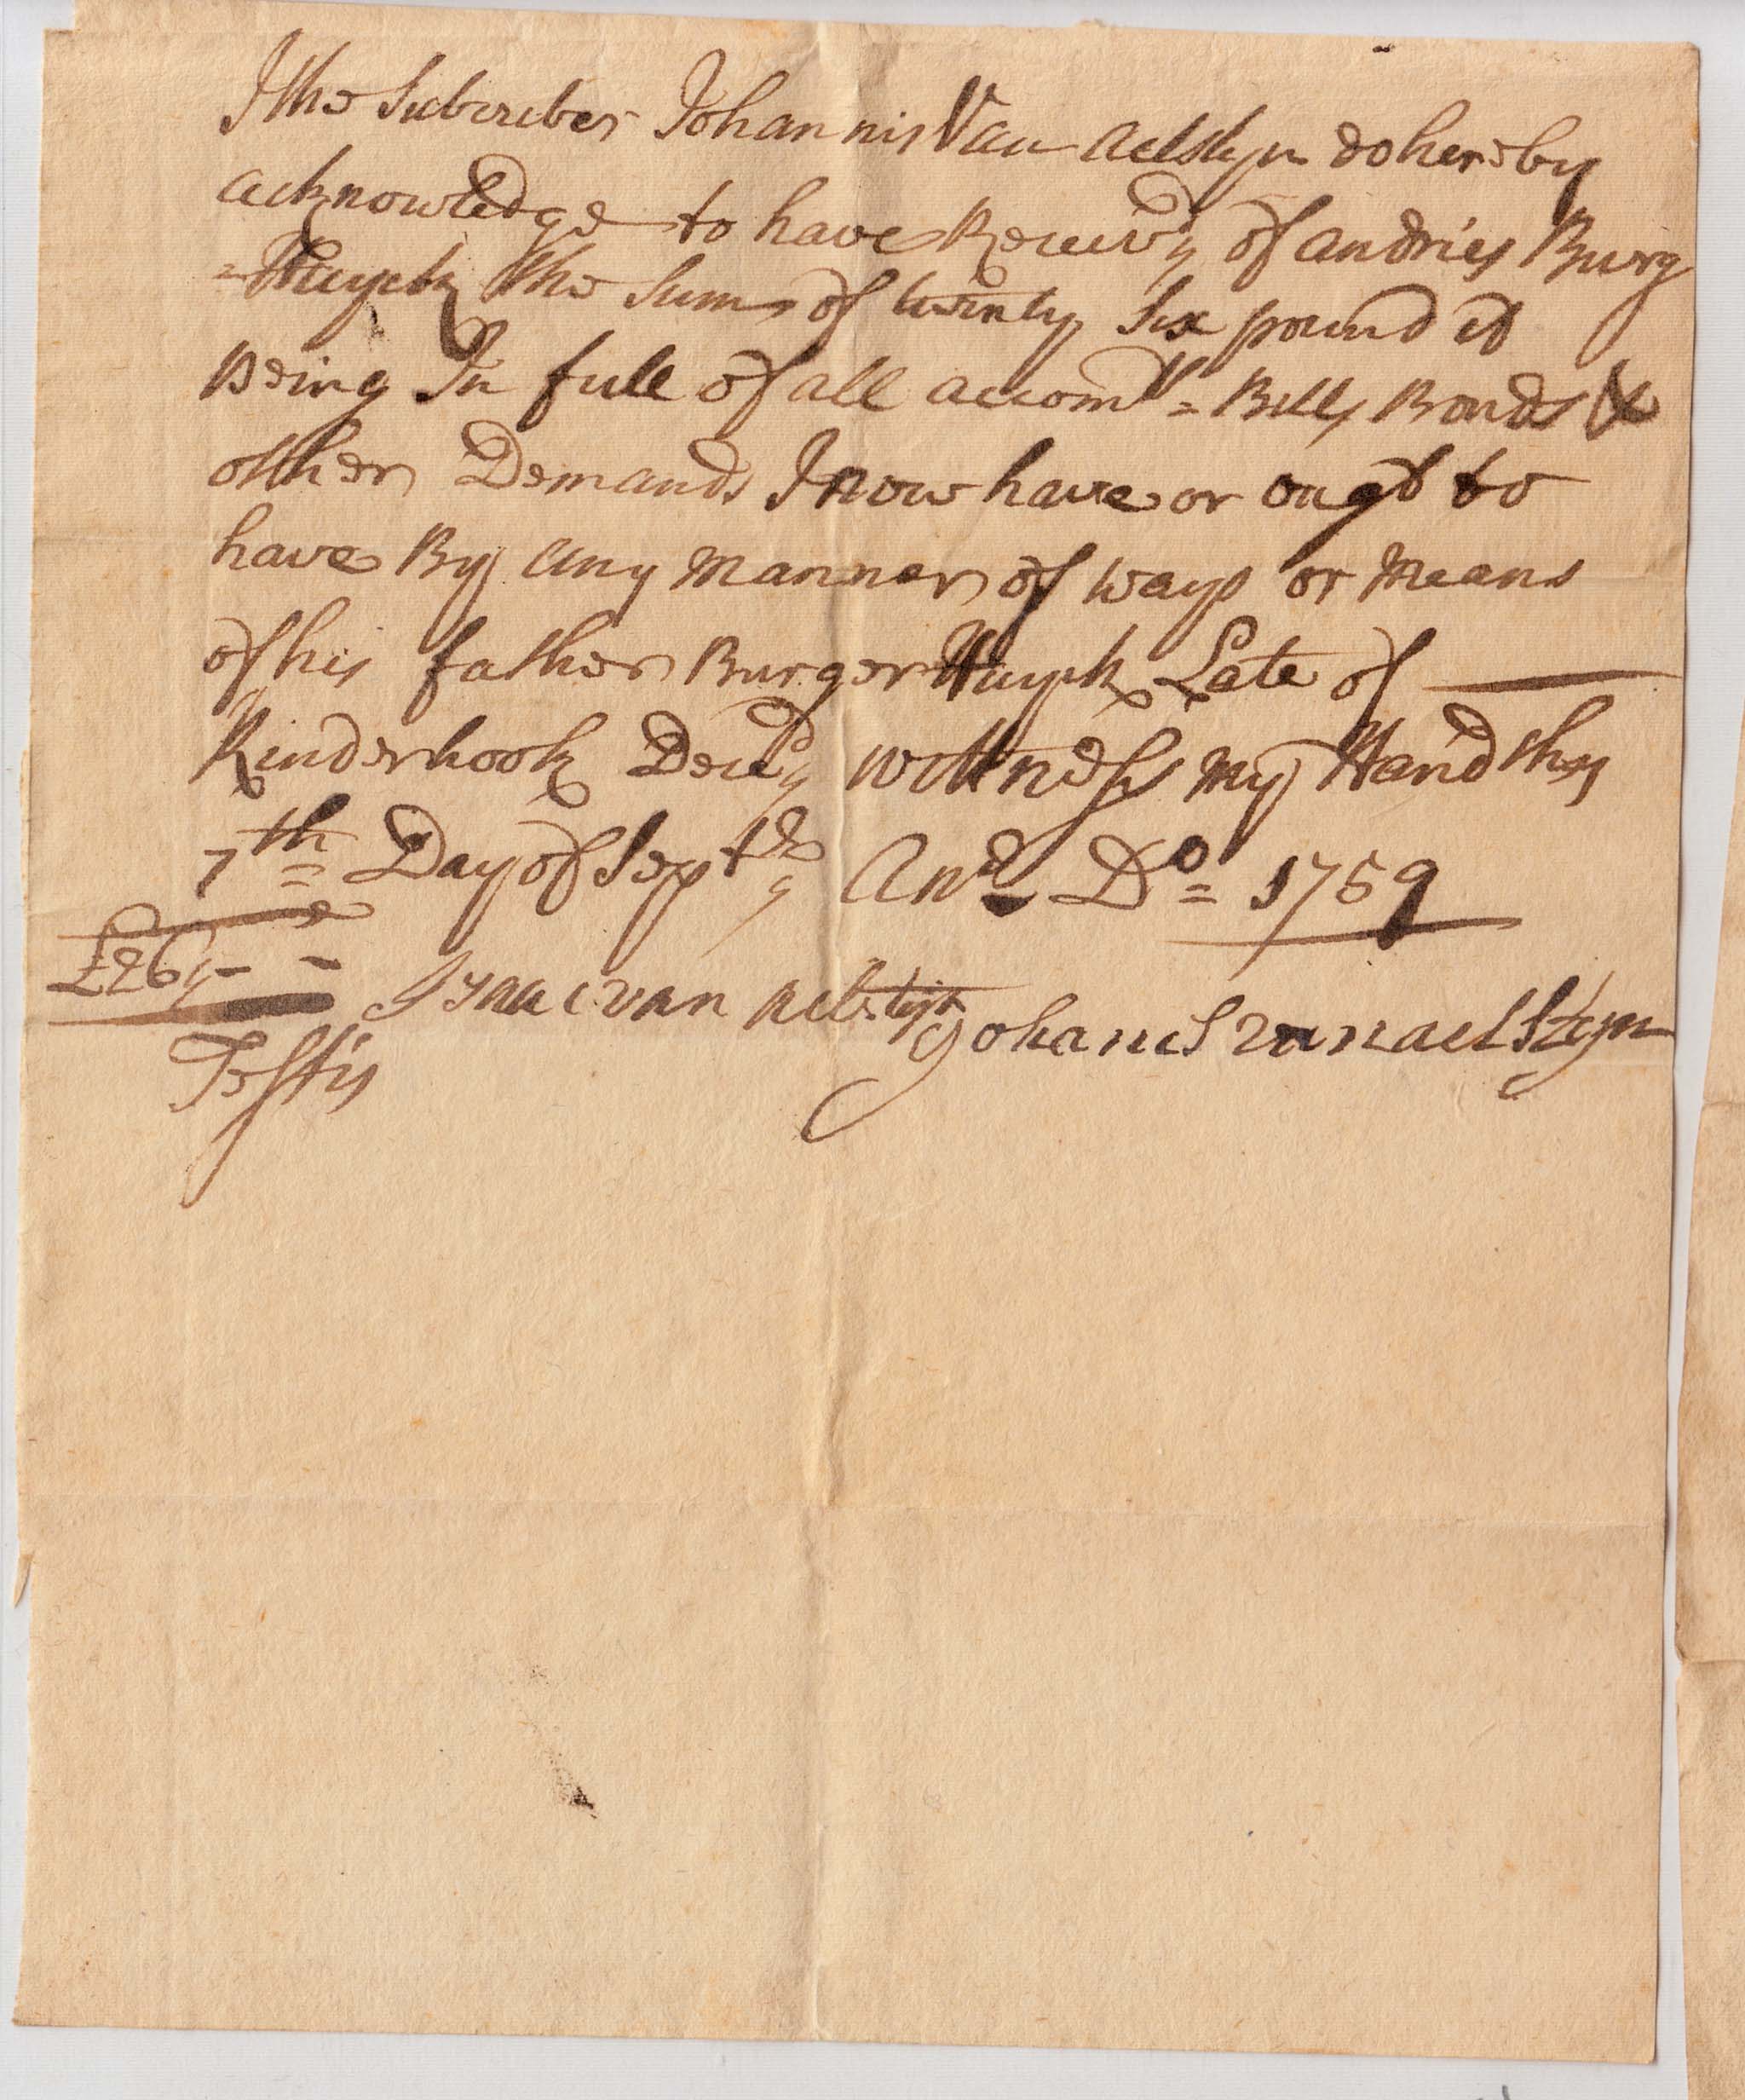 I the Subcriber Johannis Van Aelstyn do hereby
acknowledge to have Receiv'd of andries Burg
=Huyck the Sum of twenty Six pound it
Being In full of all accomts = Bills Bonds &
other Demands I now have or ougt to
have By any Manner of ways or Means
of his father Burger Huyck Late of
Kinderhook Decd wittness my Hand this
7th Day of Septbr Ano Do = 1759
£26,, - -
Isaac van aelstyn Johanes van aelstyn
Testis